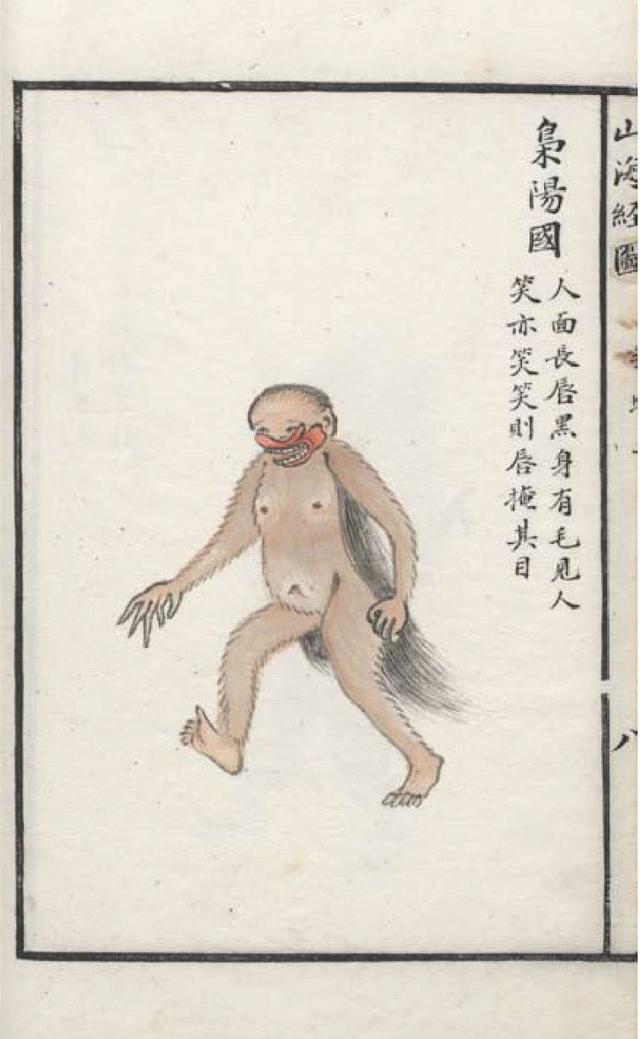 山海經圖
八
梟陽國
人面長唇黑身有毛見人
笑亦笑笑則唇掩其目